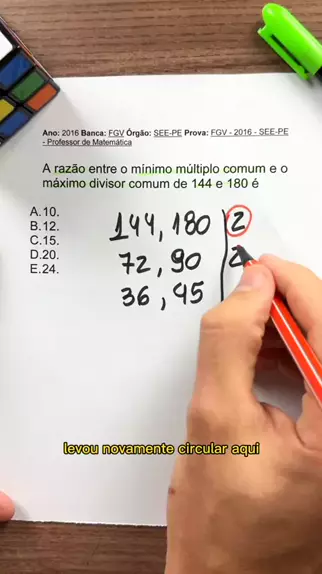 Ano: 2016 Banca: FGV Órgão: SEE-PE Prova: FGV - 2016 - SEE-PE
- Professor de Matemática
A razão entre o mínimo múltiplo comum e o
máximo divisor comum de 144 e 180 é
A.10.
B.12.
C.15.
D.20.
E.24.
144, 180 | 2
72, 90 | 2
36, 45
levou novamente circular aqui